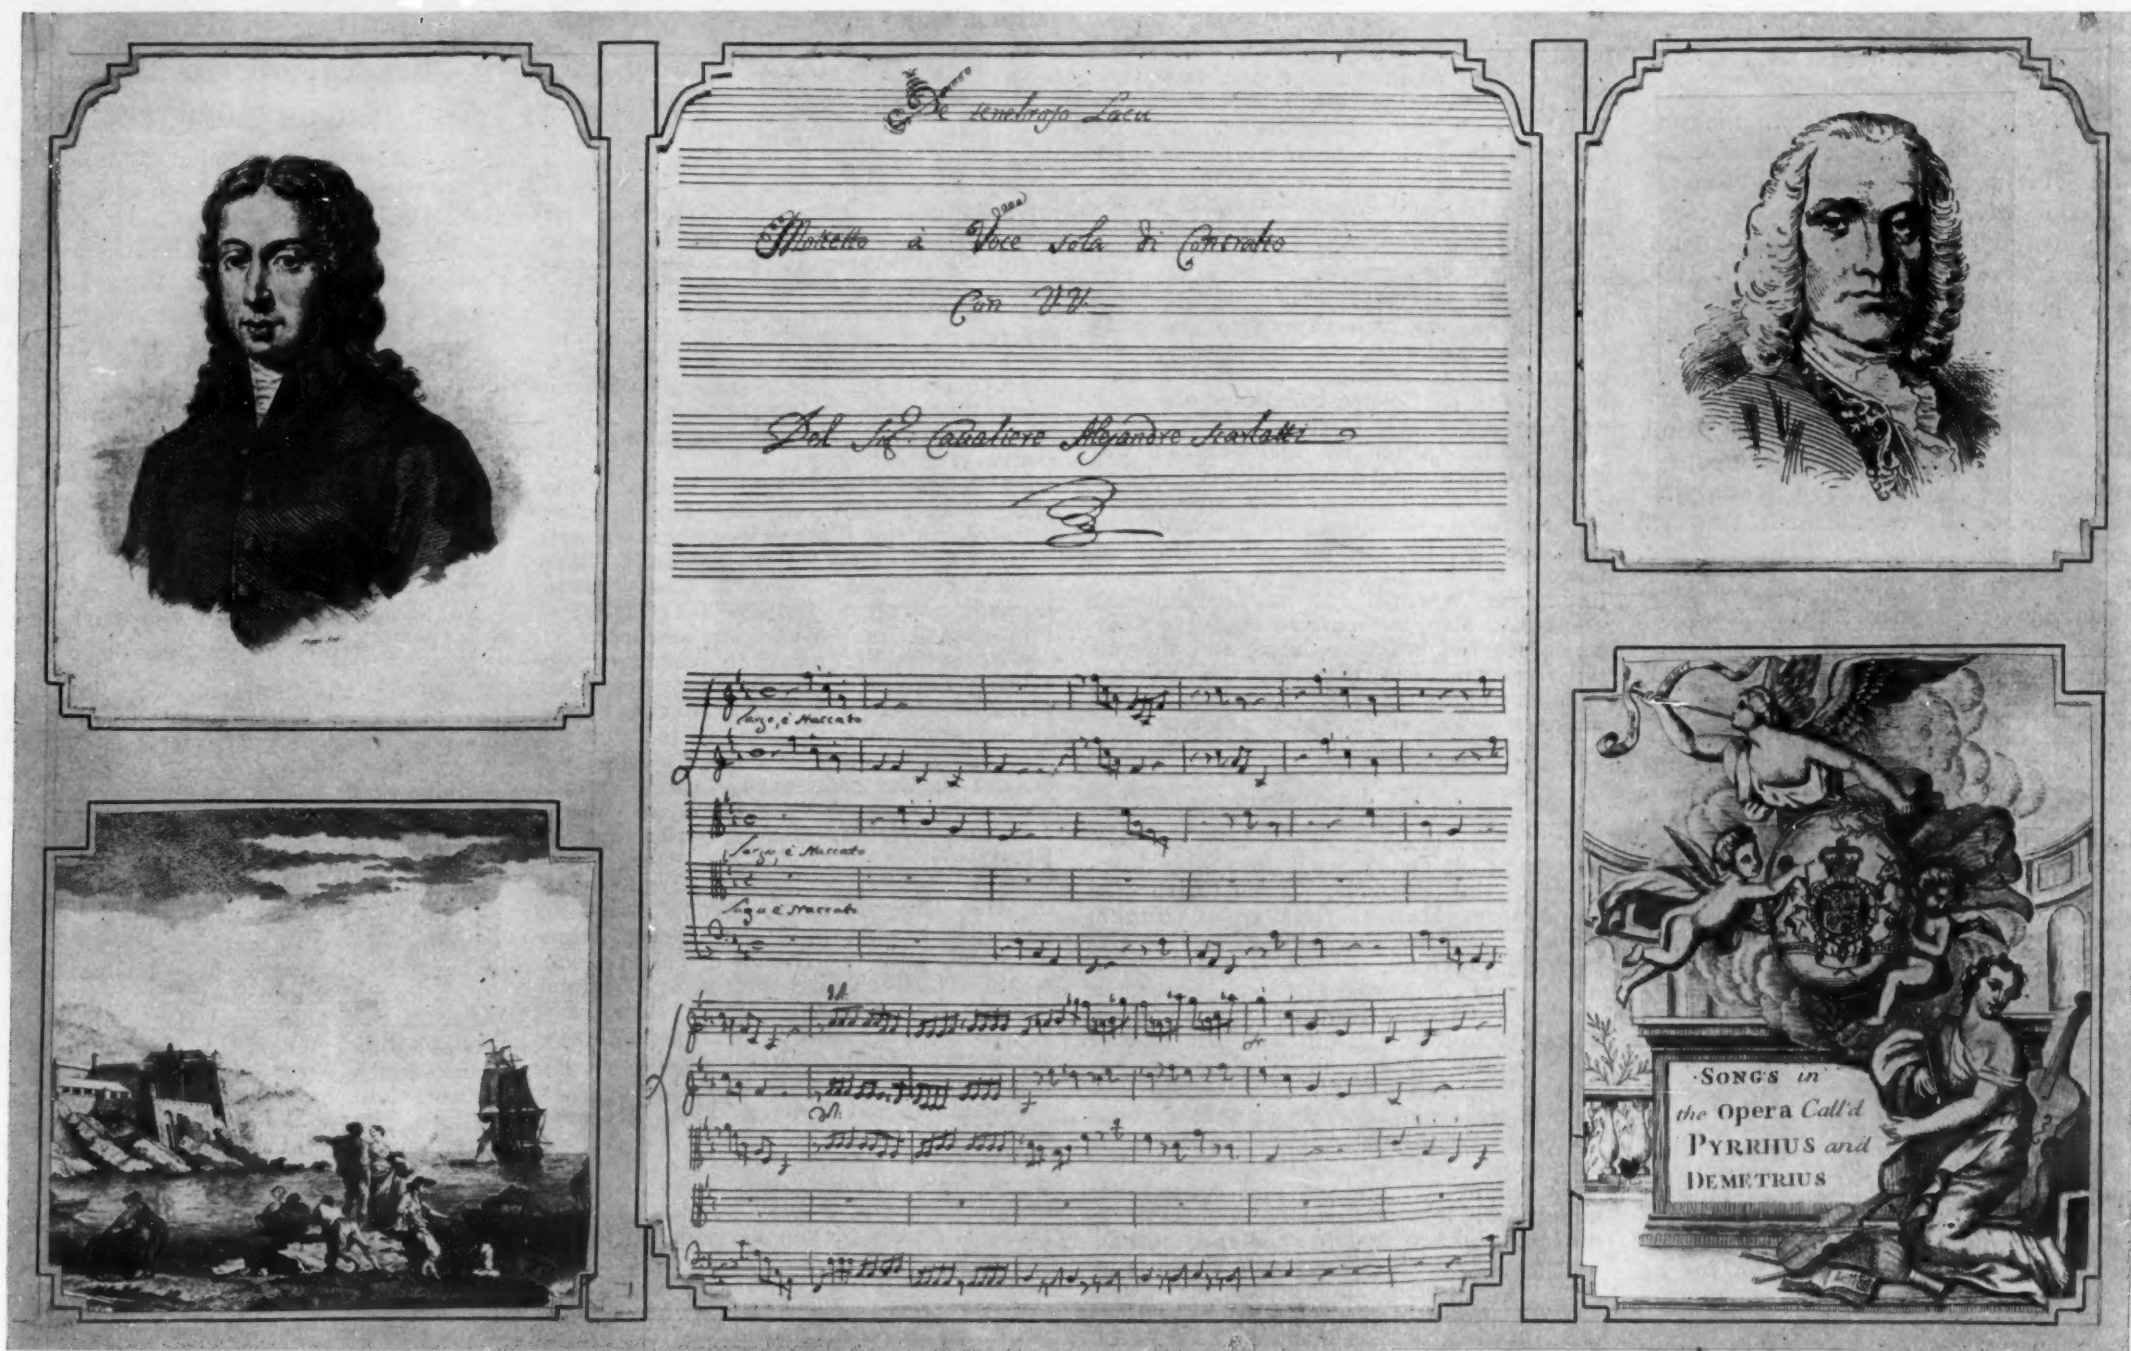 De tenebroso Lacu
Mottetto à Voce sola di Contralto
Con V.V.
Del Sig.r Caualiere Alejandro Scarlatti
Largo, è staccato
Largo, è staccato
Largo è staccato
SONGS in
the Opera Call'd
PYRRHUS and
DEMETRIUS